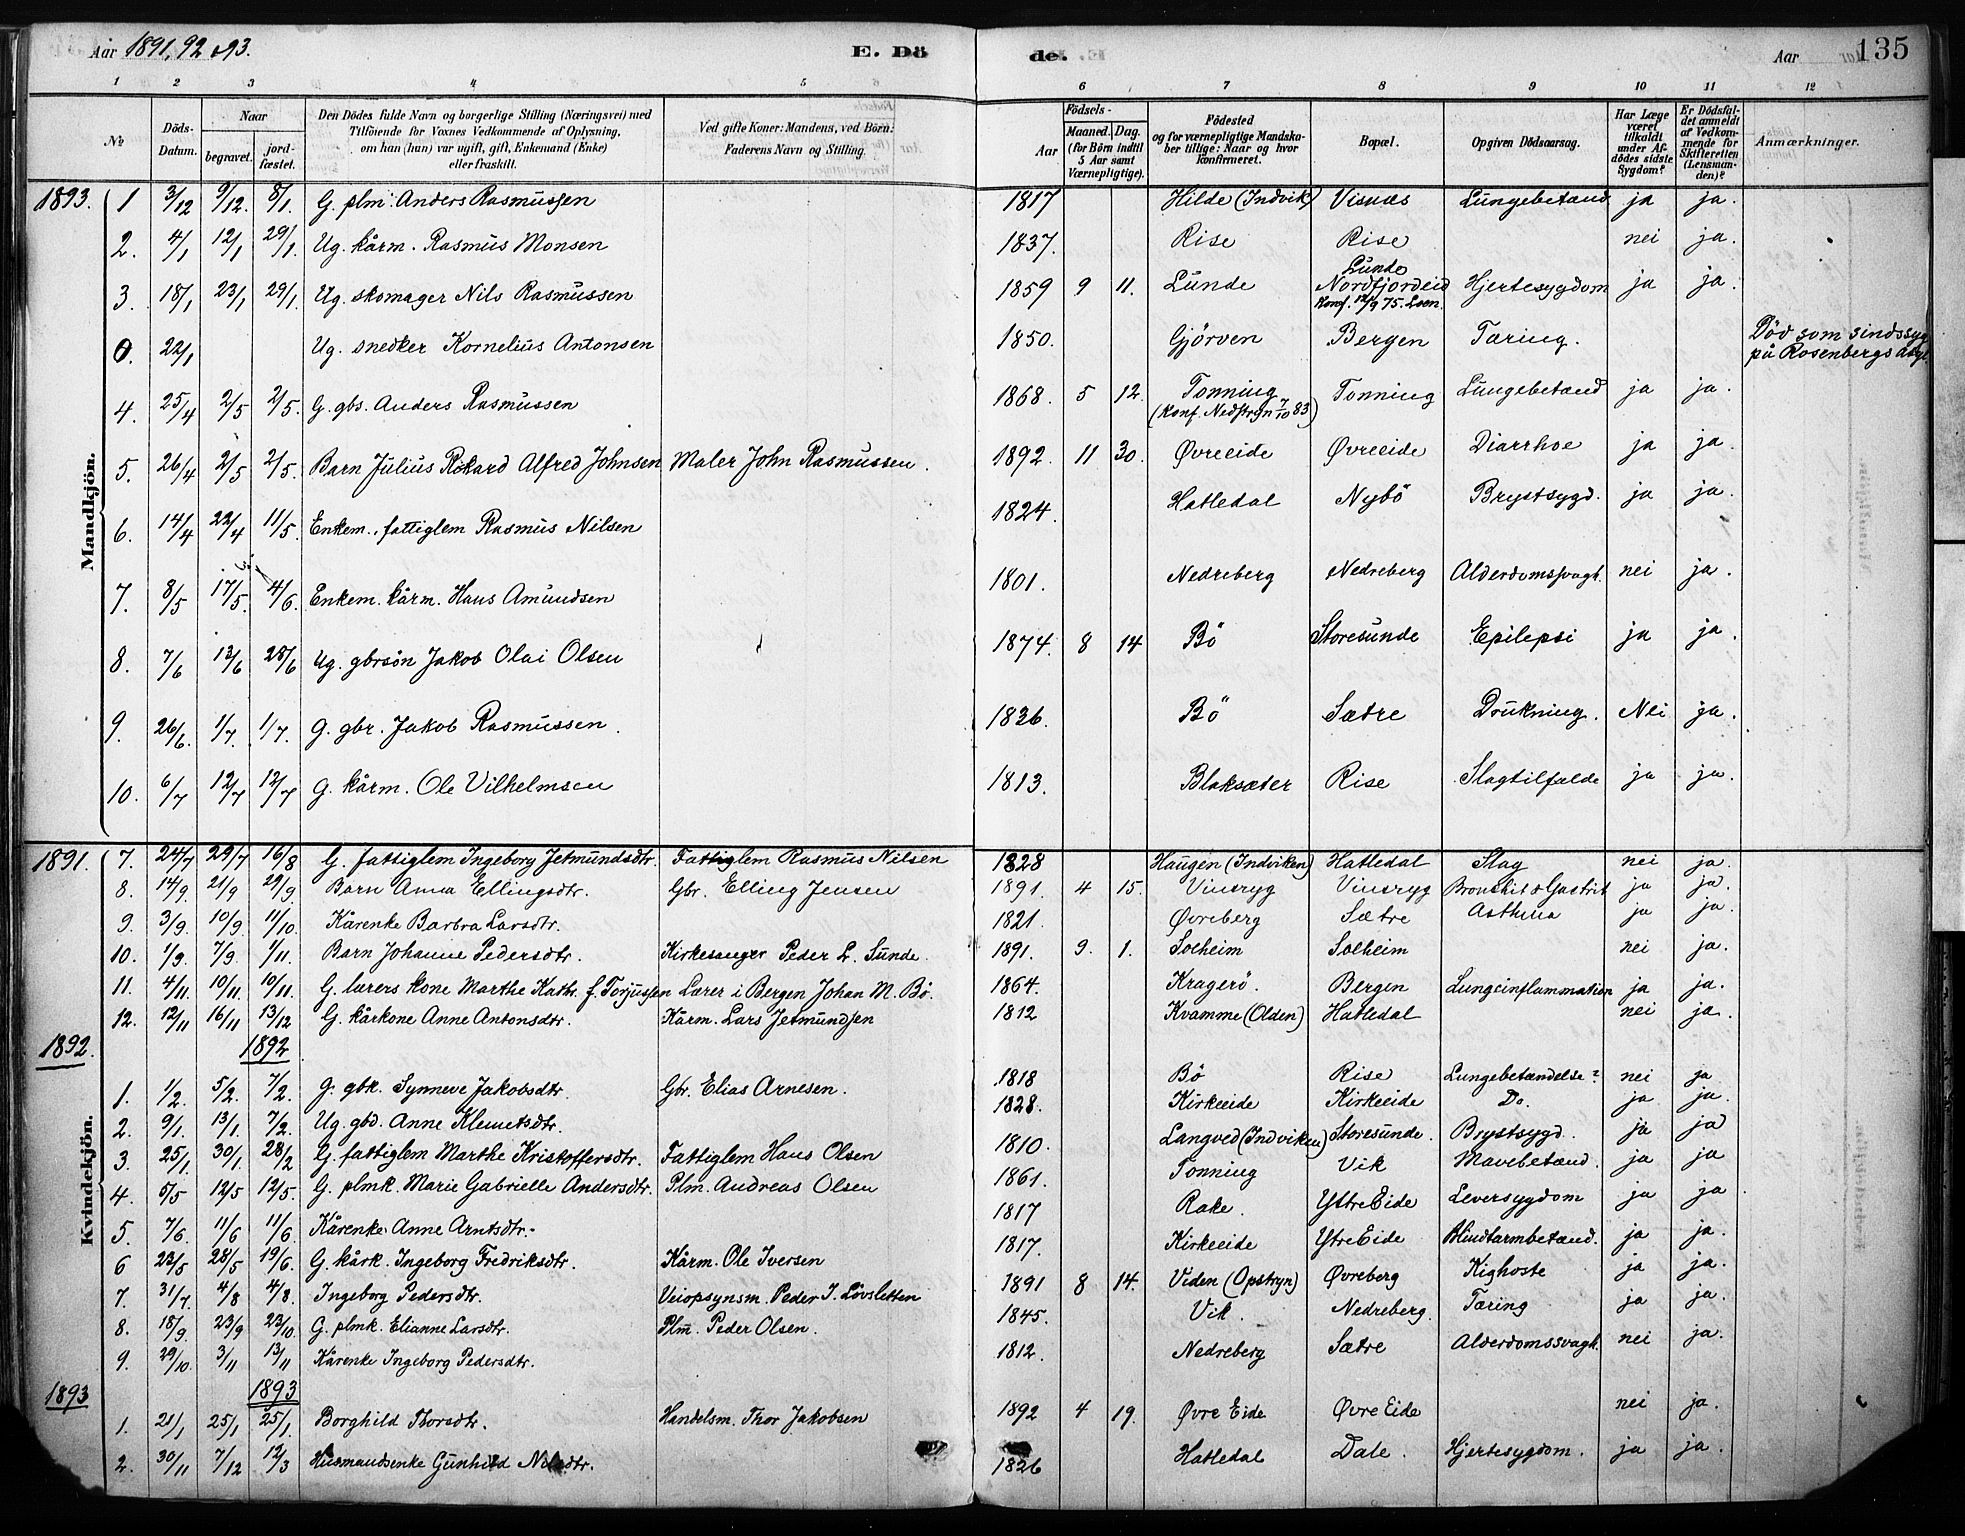 Aar 1891, 92 o 93. E. Dö de. Aar 135
1 2 3 4 5 6 7 8 9 10 11 12
№ Döds-Datum. Naar begravet. jord-fæstet. Den Dödes fulde Navn og borgerlige Stilling (Næringsvei) med Tilföiende for Voxnes Vedkommende af Oplysning, om han (hun) var ugift, gift, Enkemand (Enke) eller fraskilt. Ved gifte Koner: Mandens, ved Börn: Faderens Navn og Stilling. Födsels- Aar Maaned. Dag. (for Börn indtil 5 Aar samt Værnepligtige). Födested og for værnepligtige Mandskaber tillige: Naar og hvor konfirmeret. Bopæl. Opgiven Dödsaarsag. Har Læge været tilkaldt under Afdödes sidste Sygdom? Er Dödsfaldet anmeldt af Vedkommende for Skifteretten (Lensmanden)? Anmærkninger.
Mandkjön.
1893. 1 3/12 9/12. 8/1. G. plm. Anders Rasmussen 1817 Hilde (Indvik) Visnæs Lungebetænd ja ja.
2. 4/1 12/1 29/1. Ug. kårm. Rasmus Monsen 1837. Rise Rise nei ja.
3. 18/1 23/1 29/1. Ug. skomager Nils Rasmussen 1859 9 11. Lunde Lunde Nordfjordeid Konf. 12/9 75. Loen. Hjertesygdom ja ja.
0. 22/1 Ug. snedker Kornelius Antonsen 1850. Gjörven Bergen Tæring. Död som sindssyg på Rosenbergs asyl
4. 25/4 2/5 2/5. G. gbs. Anders Rasmussen 1868. 5 12. Tonning (Konf. Nedstryn 7/10 83) Tonning Lungebetænd ja ja.
5. 26/4 2/5 2/5. Barn Julius Rikard Alfred Johnsen Maler John Rasmussen. 1892. 11 30. Øvreeide Øvreeide Diarrhoe ja ja.
6. 14/4 22/4 11/5. Enkem., fattiglem Rasmus Nilsen 1824. Hatledal Nybö Brystsygd. ja ja.
7. 8/5 17/5. 4/6. Enkem. kårm. Hans Amundsen 1801. Nedreberg Nedreberg Alderdomssvagh. nei ja.
8. 7/6 13/6 28/6 Ug. gbrsön Jakob Olai Olsen 1874. 8 14 Bö Storesunde Epilepsi ja ja.
9. 26/6. 1/7. 1/7. G. gbr. Jakob Rasmussen. 1836. Bö Sætre Drukning. Nei ja.
10. 6/7 12/7 12/7 G. kårm. Ole Vilhelmsen 1813. Blaksæter Rise Slagtilfælde ja ja.
Kvindekjön.
1891. 7. 24/7 29/7 16/8 G. fattiglem Ingeborg Jetmundsdtr. Fattiglem Rasmus Nilsen 1828 Haugen (Indviken) Hatledal Slag nei ja.
8. 14/9. 21/9 29/9. Barn Anna Ellingsdtr. Gbr. Elling Jensen 1891. 4 15. Vinsryg Vinsryg Bronkit & Gastrit ja ja.
9. 3/9. 10/9. 11/10 Kårenke Barbra Larsdtr. 1821. Øvreberg Sætre Asthma ja ja.
10. 1/9. 7/9. 1/11. Barn Johanne Pedersdtr. Kirkesanger Peder L. Sunde. 1891. 9. 1. Solheim Solheim nei ja.
11. 4/11. 10/11. 10/11. G. lærers kone Marthe Kathr. f. Torjussen Lærer i Bergen Johan M. Bö. 1864. Kragerö. Bergen Lungeinflammation ja ja.
12. 12/11 16/11 13/12 G. kårkone Anne Antonsdtr. Kårm. Lars Jetmundsen 1812 Kvamme (Olden) Hatledal nei ja.
1892. 1892
1. 1/2. 5/2. 7/2. G. gbk. Synneve Jakobsdtr. Gbr. Elias Arnesen. 1818 Bö Rise Lungebetændelse? nei ja
2. 9/1. 13/1. 7/2. Ug. gbd. Anne Klemetsdtr. 1828. Kirkeeide Kirkeeide Do. ja ja.
3. 25/1. 30/1. 28/2 G. fattiglem Marthe Kristoffersdtr. Fattiglem Hans Olsen 1810. Langved (Indviken) Storesunde. Brystsygd. ja ja
4. 5/5 12/5 12/5. G. plmk. Marie Gabrielle Andersdtr. Plm. Andreas Olsen 1861. Tonning Vik Mavebetænd. ja ja
5. 7/6. 11/6 11/6. Kårenke Anne Arntsdtr. 1817 Rake. Ytre Eide Leversygdom ja ja
6 23/5 28/5 19/6. G. kårk. Ingeborg Fredriksdtr. Kårm. Ole Iversen 1817. Kirkeeide Ytre Eide Blindtarmbetænd. ja ja.
7. 31/7. 4/8 4/8. Ingeborg Pedersdtr. Veiopsynsm. Peder J. Lövsletten 1891 8 14. Viden (Opstryn) Øvreberg Kighoste ja ja.
8. 18/9. 23/9 23/10. G. plmk. Elianne Larsdtr. Plm. Peder Olsen. 1845. Vik. Nedreberg. Tæring ja ja.
9. 29/10. 3/11 13/11 Kårenke Ingeborg Pedersdtr. 1812. Nedreberg Sætre Alderdomssvagh. nei ja.
1893 1893
1. 21/1 25/1 25/1. Borghild Thorsdtr. Handelsm. Thor Jakobsen 1892 4 19. Øvre Eide Øvre Eide nei ja.
2. 30/11 7/12 12/3 Husmandsenke Gunhild Nilsdtr. 1826 Hatledal Dale. Hjertesygdom. ja ja.